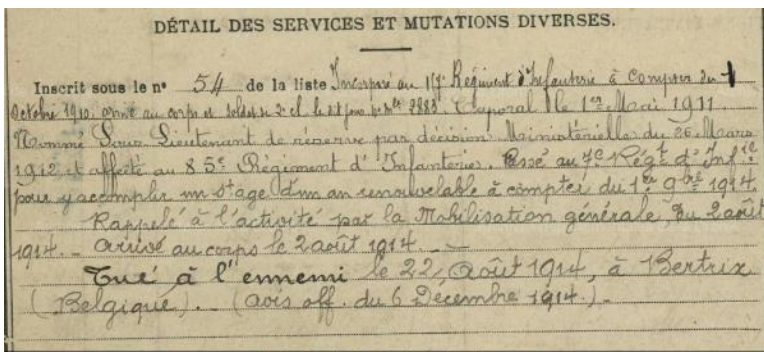 DÉTAIL DES SERVICES ET MUTATIONS DIVERSES.
Inscrit sous le n° 54 de la liste Incorporé au Régiment d'Infanterie à compter du 1
Octobre 1910, arrivé au corps et soldat de 2e cl. le dit jour, n° mle 2883. Caporal le 1er Mai 1911.
Nommé Sous-Lieutenant de réserve par décision Ministérielle du 26 Mars
1912 et affecté au 85e Régiment d'Infanterie. Passé au 7e Régt d'Infie
pour y accomplir un stage d'un an renouvelable à compter du 1er 9bre 1914.
Rappelé à l'activité par la Mobilisation générale, du 2 août
1914. _ Arrivé au corps le 2 août 1914. _ _
Tué à l'ennemi le 22, Août 1914, à Bertrix
(Belgique). _ (avis off. du 6 Décembre 1914.) _